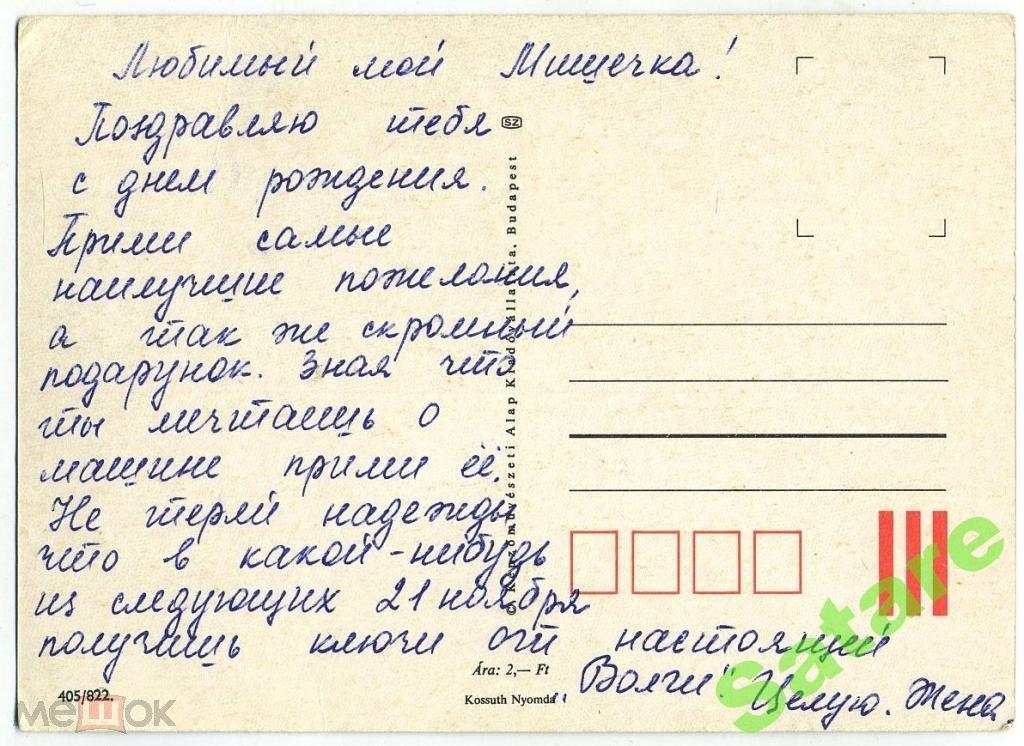 Любимый мой Мишечка!
Поздравляю тебя
с днем рождения.
Прими самые
наилучшие пожелания,
а так же скромный
подарунок. Зная что
ты мечтаешь о
машине прими её.
Не теряй надежды
что в какой-нибудь
из следующих 21 ноября
получишь ключи от настоящий
"Волги". Целую. Жена.
SZ
© Képzőművészeti Alap Kiadóvállalata, Budapest
Ára: 2,— Ft
405/822.
Kossuth Nyomda
мешок
Satare